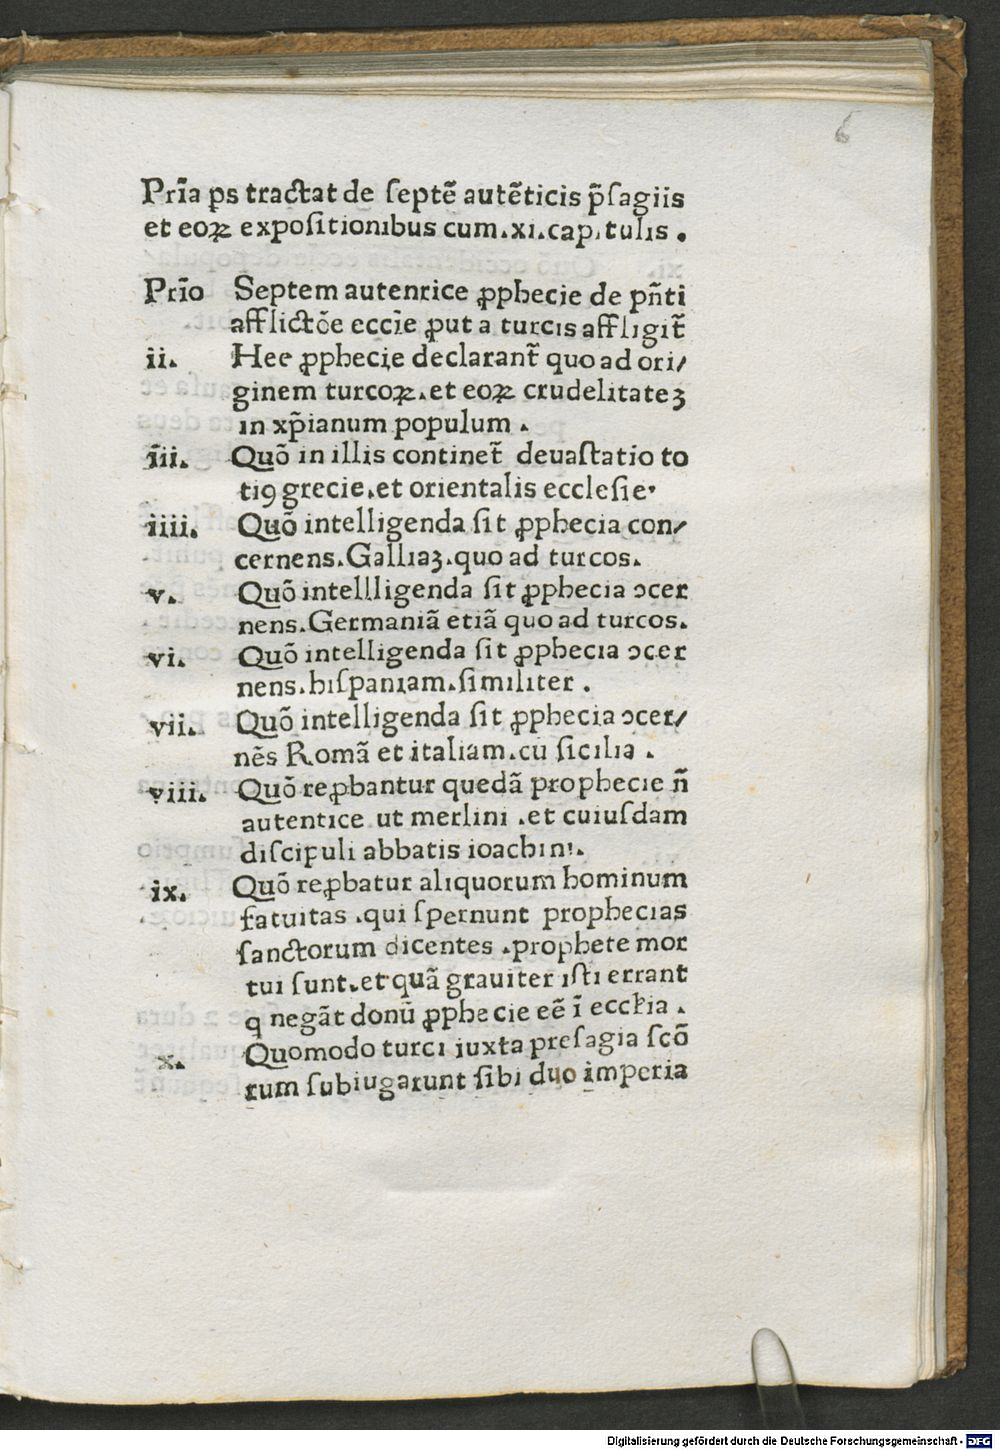 6
Pri̅a ps tractat de ſepte̅ aute̅ticis p̅ſagiis
et eoꝝ expoſitionibus cum.xi.capitulis.
Pri̅o Septem autenrice ꝓphecie de pn̅ti
afflicto̅e eccie̅ ꝓut a turcis affligit̅
ii. Hee ꝓphecie declarant̅ quo ad ori/
ginem turcoꝝ.et eoꝝ crudelitateʒ
in xp̅ianum populum.
iii. Quo̅ in illis continet̅ deuaſtatio to
tiꝰ grecie.et orientalis eccleſie.
iiii. Quo̅ intelligenda ſit ꝓphecia con/
cernens.Galliaʒ.quo ad turcos.
v. Quo̅ intellligenda ſit ꝓphecia ɔcer
nens.Germania̅ etia̅ quo ad turcos.
vi. Quo̅ intelligenda ſit ꝓphecia ɔcer
nens.hiſpaniam.ſimiliter.
vii. Quo̅ intelligenda ſit ꝓphecia ɔcer/
ne̅s Roma̅ et italiam.cu ſicilia.
viii. Quo̅ reꝓbantur queda̅ prophecie n̅
autentice ut merlini .et cuiuſdam
diſcipuli abbatis ioachini.
ix. Quo̅ reꝓbatur aliquorum hominum
fatuitas .qui ſpernunt prophecias
ſanctorum dicentes .prophete mor
tui ſunt.et qua̅ grauiter iſti errant
q nega̅t donu̅ ꝓphecie ee̅ i̅ eccľia.
x. Quomodo turci iuxta preſagia ſco̅
rum ſubiugarunt ſibi duo imperia
Digitalisierung gefördert durch die Deutsche Forschungsgemeinschaft - DFG